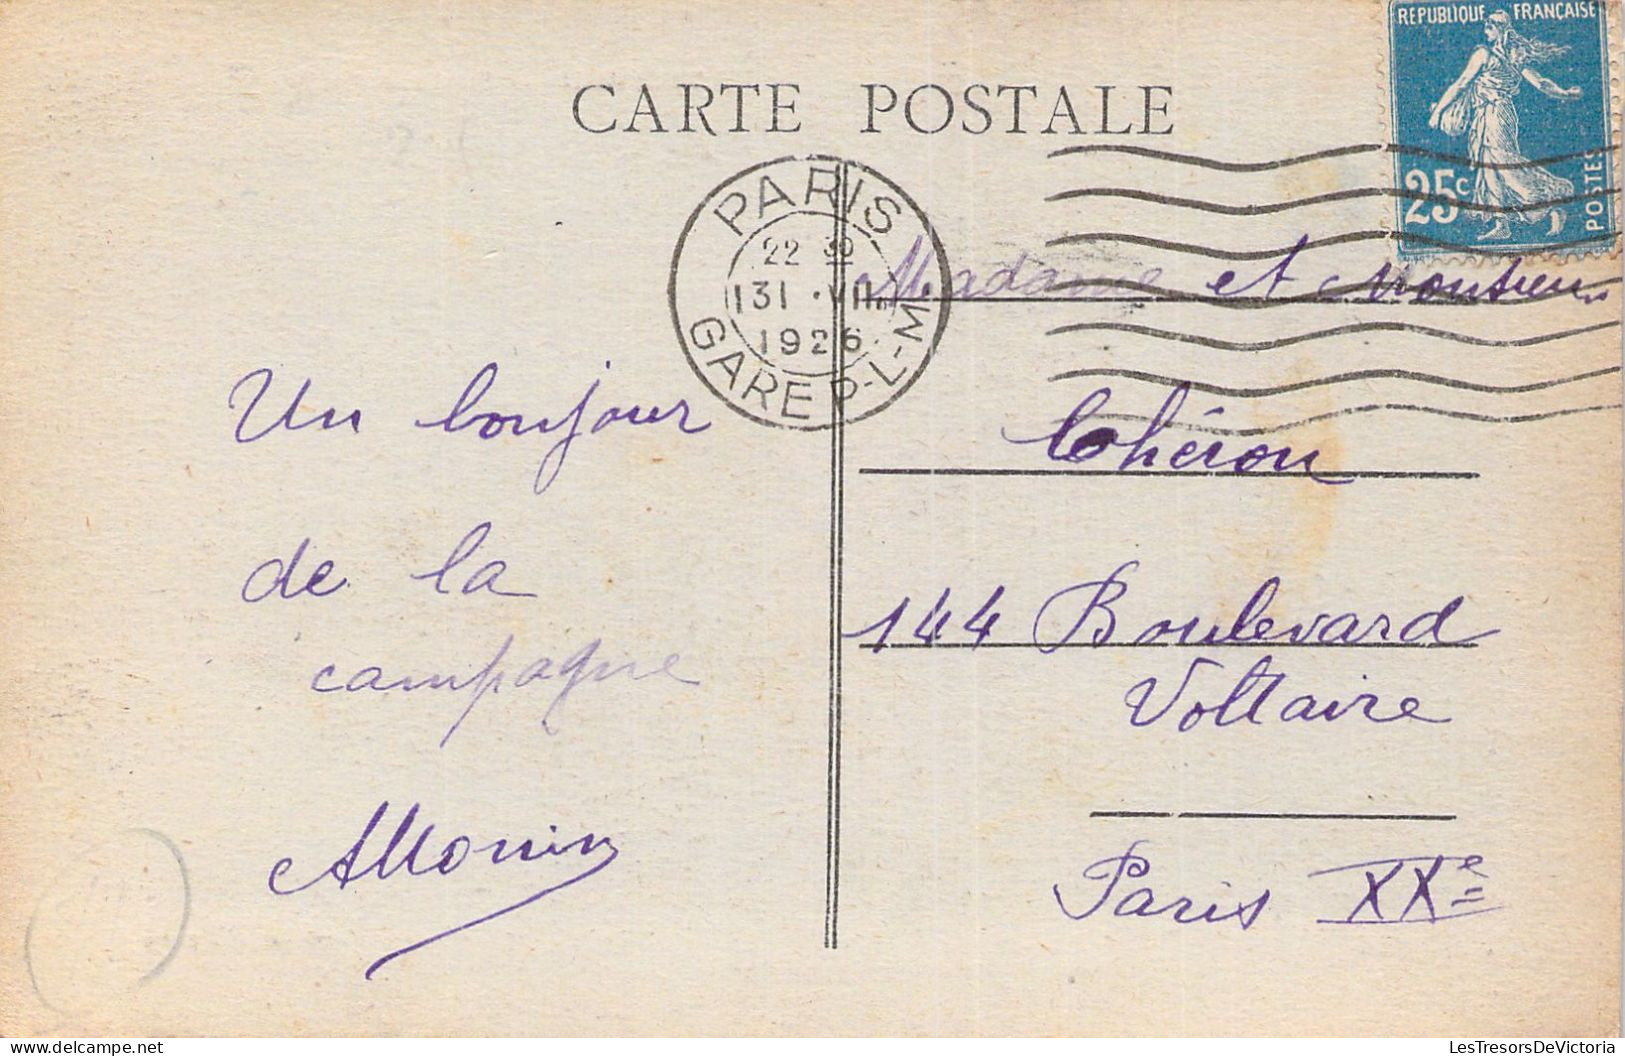 RÉPUBLIQUE FRANÇAISE
CARTE POSTALE
25c
POSTES
PARIS
22 30
31 · VII
1926
GARE P-L-M
Madame et Monsieur
Chéron
144 Boulevard
Voltaire
Paris XXe
Un bonjour
de la
campagne
AMonin
LesTresorsDeVictoria